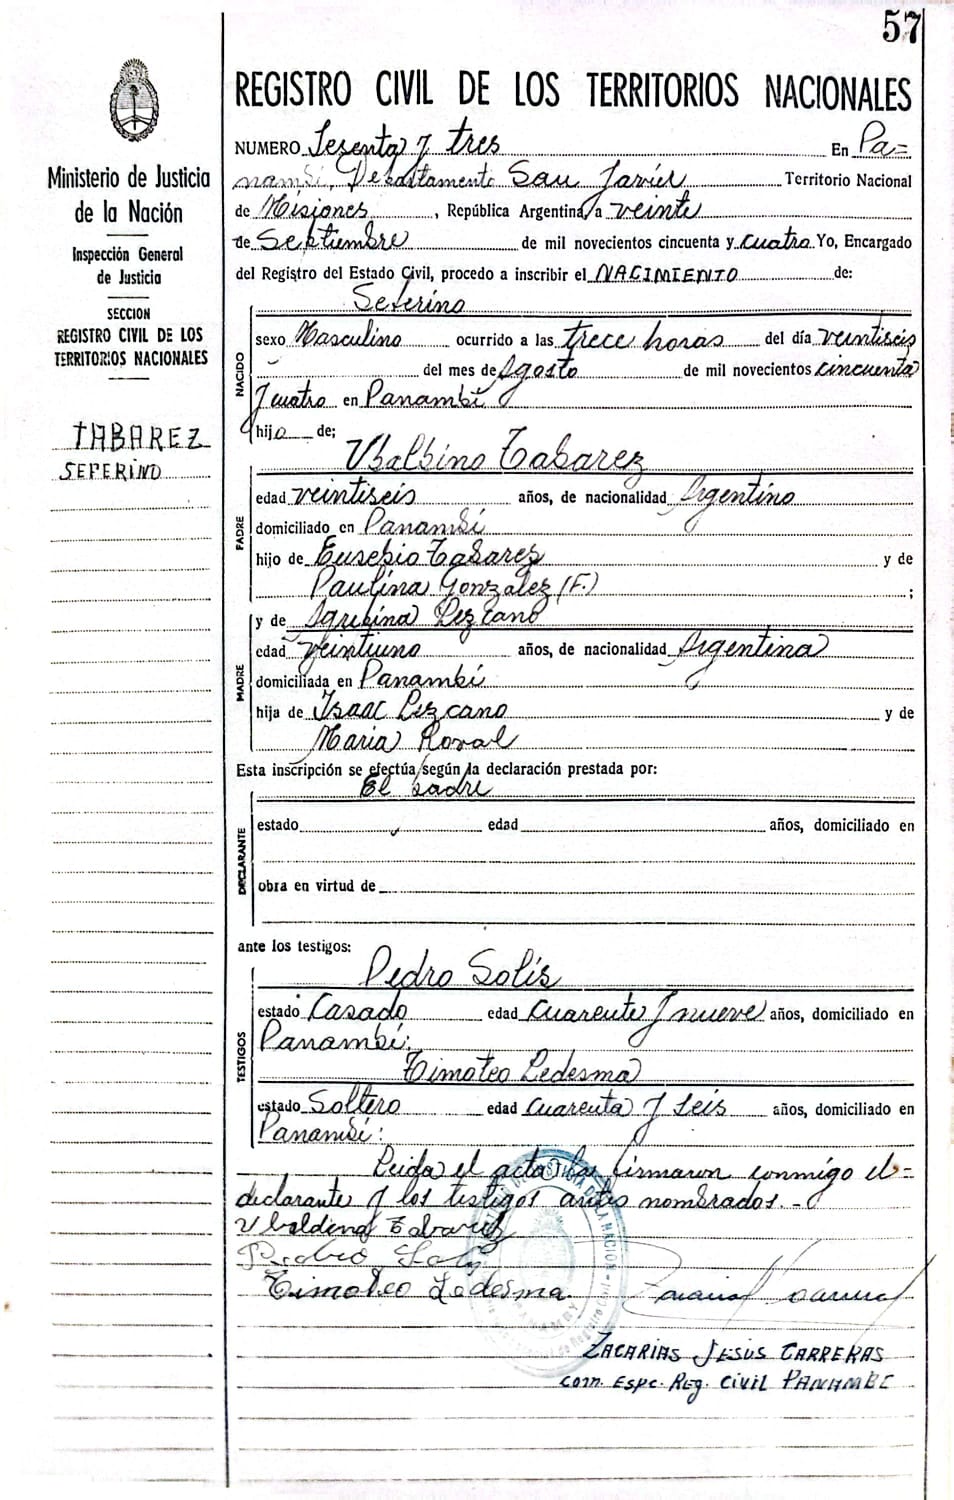 57
REGISTRO CIVIL DE LOS TERRITORIOS NACIONALES
Ministerio de Justicia
de la Nación
Inspección General
de Justicia
SECCION
REGISTRO CIVIL DE LOS
TERRITORIOS NACIONALES
TABAREZ
SEFERINO
NUMERO Sesenta y tres En Pa=
nambí, Departamento San Javier Territorio Nacional
de Misiones, República Argentina, a veinte
de Septiembre de mil novecientos cincuenta y cuatro Yo, Encargado
del Registro del Estado Civil, procedo a inscribir el NACIMIENTO de:
NACIDO
Seferino
sexo Masculino ocurrido a las trece horas del día veintiseis
del mes de Agosto de mil novecientos cincuenta
y cuatro en Panambí
hijo de:
PADRE
Ubalbino Tabarez
edad veintiseis años, de nacionalidad Argentino
domiciliado en Panambí
hijo de Eusebio Tabarez y de
Paulina Gonzalez (F.) ;
MADRE
y de Lezcano
edad veintiuno años, de nacionalidad Argentina
domiciliada en Panambí
hija de Isaac Lezcano y de
Maria
Esta inscripción se efectúa según la declaración prestada por:
DECLARANTE
El padre
estado edad años, domiciliado en
obra en virtud de
ante los testigos:
TESTIGOS
Pedro Solís
estado Casado edad cuarenta y nueve años, domiciliado en
Panambí:
Timoteo Ledesma
estado Soltero edad cuarenta y seis años, domiciliado en
Panambí:
Leida el acta la firmaron conmigo el=
declarante y los testigos antes nombrados.-
Tabarez
Timoteo Ledesma.
ZACARIAS JESUS CARRERAS
Com. Espc. Reg. Civil PANAMBI